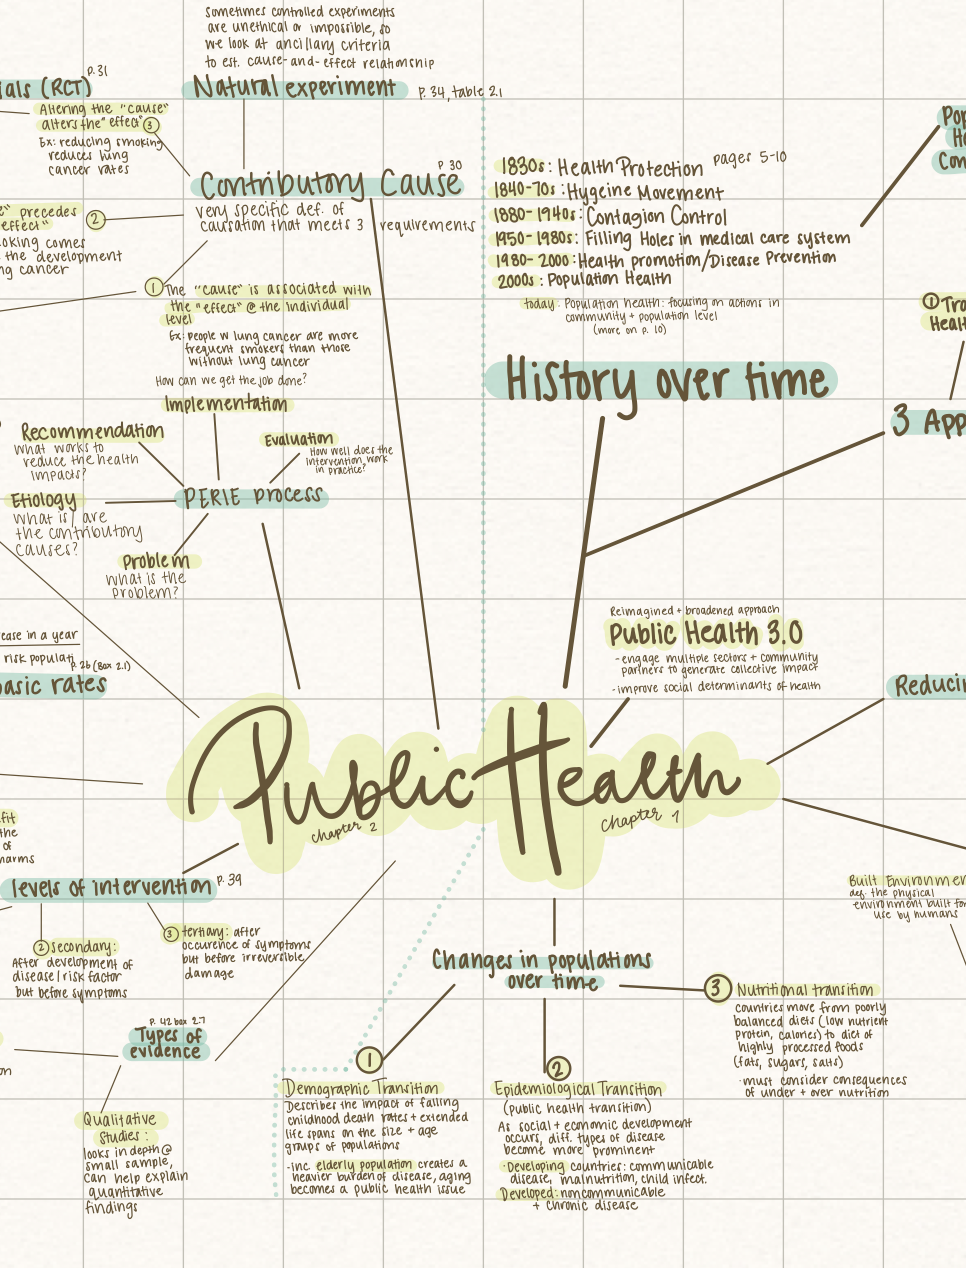 Sometimes controlled experiments
are unethical or impossible, so
we look at ancillary criteria
to est. cause-and-effect relationship
Natural experiment
p. 34, table 2.1
p. 31
ials (RCT)
Altering the "cause"
alters the "effect" 3
Ex: reducing smoking
reduces lung
cancer rates
p 30
Contributory Cause
very specific def. of
causation that meets 3 requirements
e" precedes
effect" 2
oking comes
the development
ng cancer
1 The "cause" is associated with
the "effect" @ the individual
level
Ex: people w lung cancer are more
frequent smokers than those
without lung cancer
How can we get the job done?
Implementation
Recommendation
What works to
reduce the health
impacts?
Evaluation
How well does the
intervention work
in practice?
Etiology
What is/are
the contributory
causes?
PERIE process
Problem
What is the
problem?
ease in a year
risk populati
p. 26 (Box 2.1)
basic rates
1830s: Health Protection pages 5-10
1840-70s: Hygeine Movement
1880-1940s: Contagion Control
1950-1980s: Filling Holes in medical care system
1980-2000: Health promotion/Disease Prevention
2000s: Population Health
today: Population health: focusing on actions in
community + population level
(more on p. 10)
History over time
Pop
He
Con
1 Tra
Healt
3 App
Reimagined + broadened approach
Public Health 3.0
- engage multiple sectors + community
partners to generate collective impact
- improve social determinants of health
Reducin
Public Health
chapter 2
chapter 1
fit
the
of
harms
levels of intervention p. 39
2 secondary:
After development of
disease/risk factor
but before symptoms
3 tertiary: after
occurence of symptoms
but before irreversible
damage
p. 42 box 2.7
Types of
evidence
on
Qualitative
studies:
looks in depth @
small sample,
can help explain
quantitative
findings
Built Environmen
def: the physical
environment built for
use by humans
Changes in populations
over time
1
Demographic Transition
Describes the impact of falling
childhood death rates + extended
life spans on the size + age
groups of populations
- inc. elderly population creates a
heavier burden of disease, aging
becomes a public health issue
2
Epidemiological Transition
(public health transition)
As social + economic development
occurs, diff. types of disease
become more prominent
· Developing countries: communicable
disease, malnutrition, child infect.
Developed: noncommunicable
+ chronic disease
3 Nutritional transition
countries move from poorly
balanced diets (low nutrient
protein, calories) to diet of
highly processed foods
(fats, sugars, salts)
· must consider consequences
of under + over nutrition